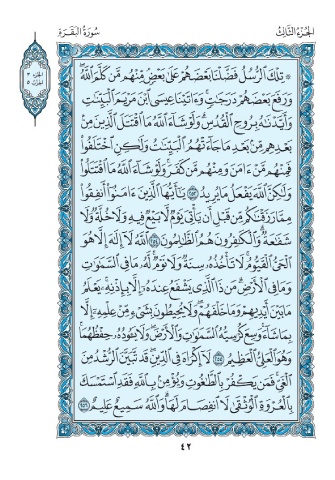 الجزء الثالث
سورة البقرة
الجزء ٣
الحزب ٥
۞ تِلْكَ الرُّسُلُ فَضَّلْنَا بَعْضَهُمْ عَلَىٰ بَعْضٍ مِّنْهُم مَّن كَلَّمَ اللَّهُ
وَرَفَعَ بَعْضَهُمْ دَرَجَاتٍ وَءَاتَيْنَا عِيسَى ابْنَ مَرْيَمَ الْبَيِّنَاتِ
وَأَيَّدْنَاهُ بِرُوحِ الْقُدُسِ وَلَوْ شَاءَ اللَّهُ مَا اقْتَتَلَ الَّذِينَ مِن
بَعْدِهِم مِّن بَعْدِ مَا جَاءَتْهُمُ الْبَيِّنَاتُ وَلَٰكِنِ اخْتَلَفُوا
فَمِنْهُم مَّنْ ءَامَنَ وَمِنْهُم مَّن كَفَرَ وَلَوْ شَاءَ اللَّهُ مَا اقْتَتَلُوا
وَلَٰكِنَّ اللَّهَ يَفْعَلُ مَا يُرِيدُ ٢٥٣ يَا أَيُّهَا الَّذِينَ ءَامَنُوا أَنفِقُوا
مِمَّا رَزَقْنَاكُم مِّن قَبْلِ أَن يَأْتِيَ يَوْمٌ لَّا بَيْعٌ فِيهِ وَلَا خُلَّةٌ وَلَا
شَفَاعَةٌ وَالْكَافِرُونَ هُمُ الظَّالِمُونَ ٢٥٤ اللَّهُ لَا إِلَٰهَ إِلَّا هُوَ
الْحَيُّ الْقَيُّومُ لَا تَأْخُذُهُ سِنَةٌ وَلَا نَوْمٌ لَّهُ مَا فِي السَّمَاوَاتِ
وَمَا فِي الْأَرْضِ مَن ذَا الَّذِي يَشْفَعُ عِندَهُ إِلَّا بِإِذْنِهِ يَعْلَمُ
مَا بَيْنَ أَيْدِيهِمْ وَمَا خَلْفَهُمْ وَلَا يُحِيطُونَ بِشَيْءٍ مِّنْ عِلْمِهِ إِلَّا
بِمَا شَاءَ وَسِعَ كُرْسِيُّهُ السَّمَاوَاتِ وَالْأَرْضَ وَلَا يَئُودُهُ حِفْظُهُمَا
وَهُوَ الْعَلِيُّ الْعَظِيمُ ٢٥٥ لَا إِكْرَاهَ فِي الدِّينِ قَد تَّبَيَّنَ الرُّشْدُ مِنَ
الْغَيِّ فَمَن يَكْفُرْ بِالطَّاغُوتِ وَيُؤْمِن بِاللَّهِ فَقَدِ اسْتَمْسَكَ
بِالْعُرْوَةِ الْوُثْقَىٰ لَا انفِصَامَ لَهَا وَاللَّهُ سَمِيعٌ عَلِيمٌ ٢٥٦
٤٢